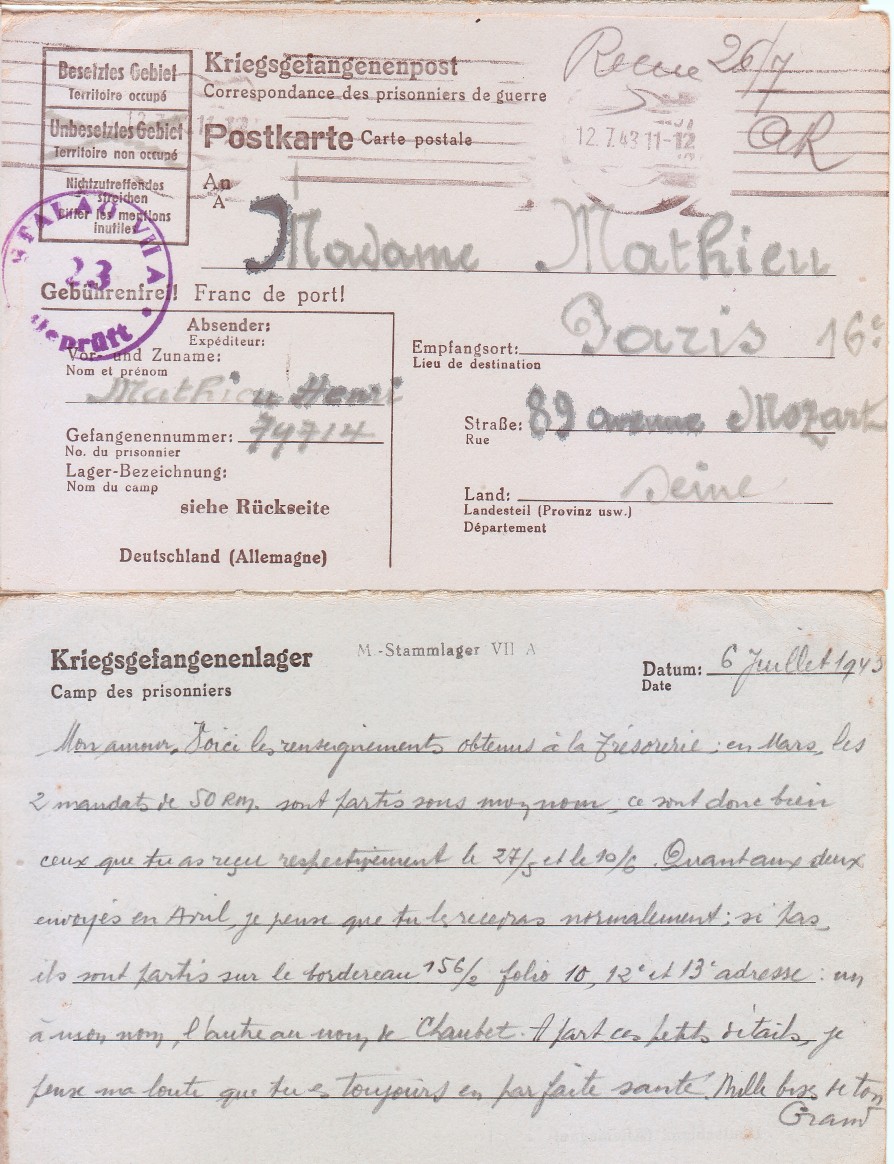 Besetztes Gebiet
Territoire occupé
Unbesetztes Gebiet
Territoire non occupé
Nichtzutreffendes
streichen
Biffer les mentions
inutiles
Kriegsgefangenenpost
Correspondance des prisonniers de guerre
Postkarte Carte postale
Recue 26/7
12.7.43 11-12
An
A
Madame Mathieu
STALAG VII A
23
Geprüft
Gebührenfrei! Franc de port!
Paris 16e
Absender:
Expéditeur:
Vor- und Zuname:
Nom et prénom
Mathieu Henri
Gefangenennummer: 79714
No. du prisonnier
Lager-Bezeichnung:
Nom du camp
siehe Rückseite
Deutschland (Allemagne)
Empfangsort:
Lieu de destination
Straße: 89 avenue Mozart
Rue
Land: Seine
Landesteil (Provinz usw.)
Département
Kriegsgefangenenlager
Camp des prisonniers
M.-Stammlager VII A
Datum: 6 Juillet 1943
Date
Mon amour. Voici les renseignements obtenus à la Trésorerie : en Mars, les
2 mandats de 50 RM. sont partis sous mon nom, ce sont donc bien
ceux que tu as reçu respectivement le 27/5 et le 10/6. Quant aux deux
envoyés en Avril, je pense que tu les recevras normalement ; si pas,
ils sont partis sur le bordereau 156/2 folio 10, 12e et 13e adresse : un
à mon nom, l'autre au nom de Chaubet. A part ces petits détails, je
pense ma loute que tu es toujours en parfaite santé. Mille bises de ton
Grand